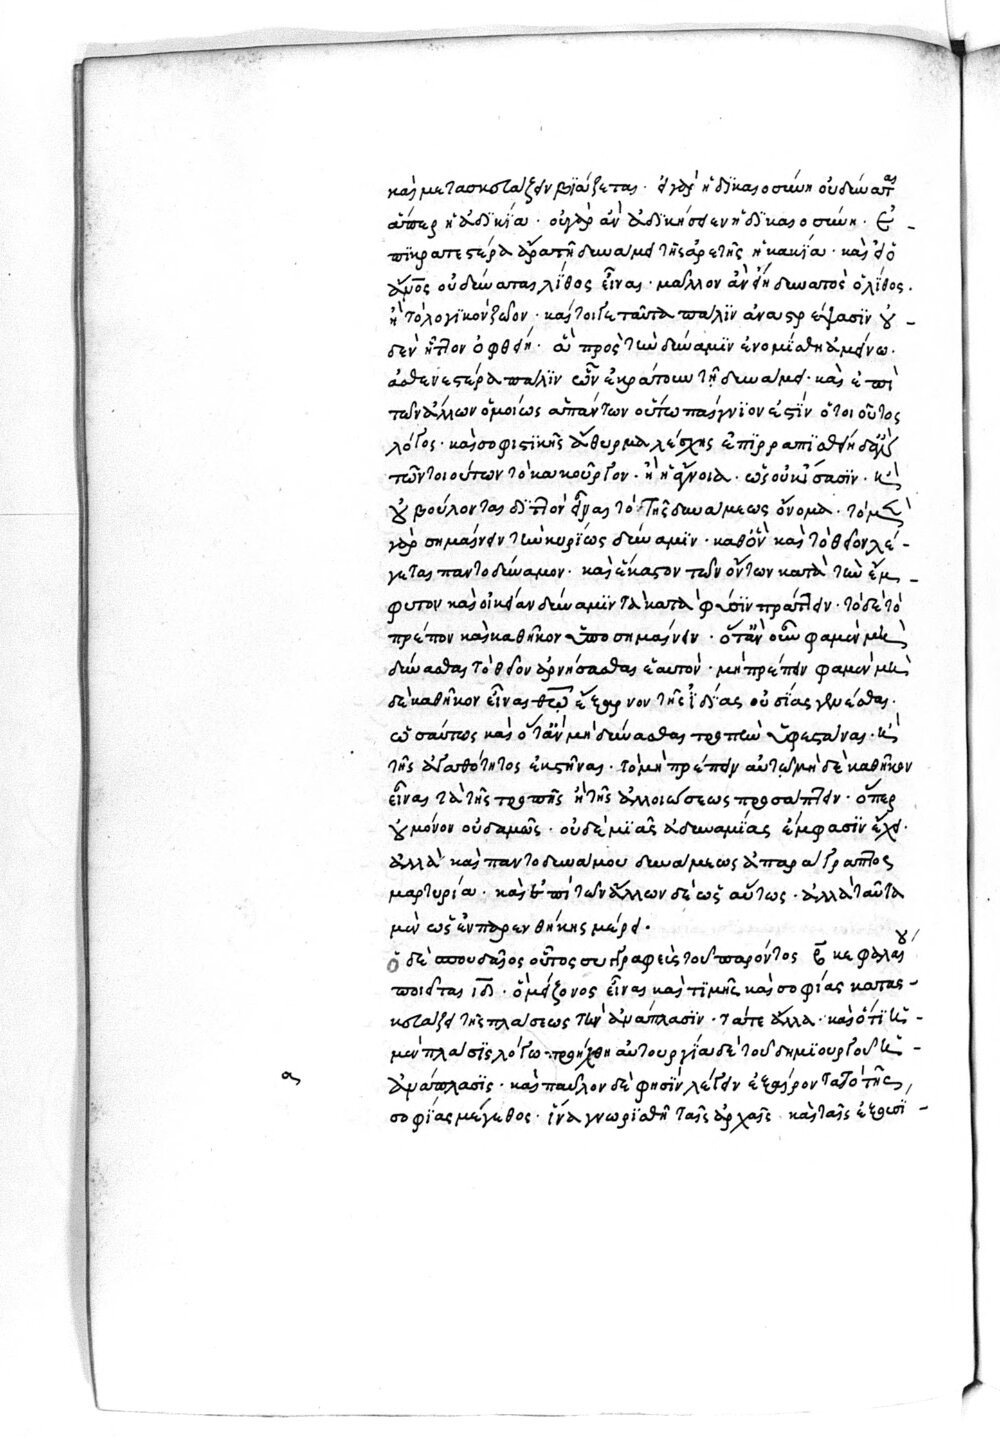 καὶ μετασκευάζειν βιάζεται· εἰ γὰρ ἡ δικαιοσύνη οὐ δύναται
ἅπερ ἡ ἀδικία· οὐ γὰρ ἂν ἀδικήσειεν ἡ δικαιοσύνη· ἐ-
πικρατεστέρα ἄρα τῇ δυνάμει τῆς ἀρετῆς ἡ κακία· καὶ εἰ ὁ
ἄνος οὐ δύναται λίθος εἶναι· μᾶλλον ἂν εἴη δυνατὸς ὁ λίθος·
ἢ τὸ λογικὸν ζῶον· καίτοιγε ταῦτα πάλιν ἀναστρέψασιν οὐ-
δὲν ἧττον ὀφθείη· ἃ πρὸς τὴν δύναμιν ἐνομίσθη ἀμείνω·
ἀσθενεστέρα πάλιν ὧν ἐκράτουν τῇ δυνάμει· καὶ ἐπὶ
τῶν ἄλλων ὁμοίως ἁπάντων οὕτω παίγνιον ἐστὶν ὁ τοιοῦτος
λόγος· καὶ σοφιστικῆς ἄθυρμα λέσχης ἐπιρραπισθείη δ' ἂν
τῶν τοιούτων τὸ κακοῦργον· ἢ ἡ ἄγνοια· ὡς οὐκ ἴσασιν· κ(αὶ)
οὐ βούλονται διττὸν εἶναι τὸ τῆς δυνάμεως ὄνομα· τὸ μ(ὲν)
γὰρ σημαίνειν τὴν κυρίως δύναμιν· καθ' ὃν καὶ τὸ θεῖον λέ-
γεται παντοδύναμον· καὶ ἕκαστον τῶν ὄντων κατὰ τὴν ἔμ-
φυτον καὶ οἰκείαν δύναμιν τὰ κατὰ φύσιν πράττειν· τὸ δὲ τὸ
πρέπον καὶ καθῆκον ὑποσημαίνειν· ὅταν οὖν φαμὲν μὴ
δύνασθαι τὸ θεῖον ἀρνήσασθαι ἑαυτόν· μὴ πρέπειν φαμὲν μη-
δὲ καθῆκον εἶναι θεῷ ἔξω τῆς ἰδίας οὐσίας γενέσθαι·
ὡσαύτως καὶ ὅταν μὴ δύνασθαι τροπὴν ὑφεστάναι· κ(αὶ)
τῆς ἀγαθότητος ἐκστῆναι· τὸ μὴ πρέπειν αὐτῷ μηδὲ καθῆκον
εἶναι τὰ τῆς τροπῆς ἢ τῆς ἀλλοιώσεως προσάπτειν· ὅπερ
οὐ μόνον οὐδαμῶς· οὐδεμιᾶς ἀδυναμίας ἔμφασιν ἔχει·
ἀλλὰ καὶ παντοδυνάμου δυνάμεως ἀπαράγραπτος
μαρτυρία· καὶ ἐπὶ τῶν ἄλλων δὲ ὡσαύτως· ἀλλὰ ταῦτα
μὲν ὡς ἐν παρενθήκης μέρει·
ὁ δὲ σπουδαῖος οὗτος συγγραφεὺς τοῦ παρόντος κεφαλαίου
ποιεῖται ὁ μείζονος εἶναι καὶ τιμῆς καὶ σοφίας κατασ-
κευάζει τῆς πλάσεως τὴν ἀνάπλασιν· τά τε ἄλλα· καὶ ὅτι ἡ
μὲν πλάσις λόγῳ προήχθη αὐτουργία δὲ τοῦ δημιουργοῦ ἡ
ἀνάπλασις· καὶ παῦλον δὲ φησὶν λέγειν ἐξαίροντα τὸ τῆς
σοφίας μέγεθος· ἵνα γνωρισθῇ ταῖς ἀρχαῖς καὶ ταῖς ἐξουσί-